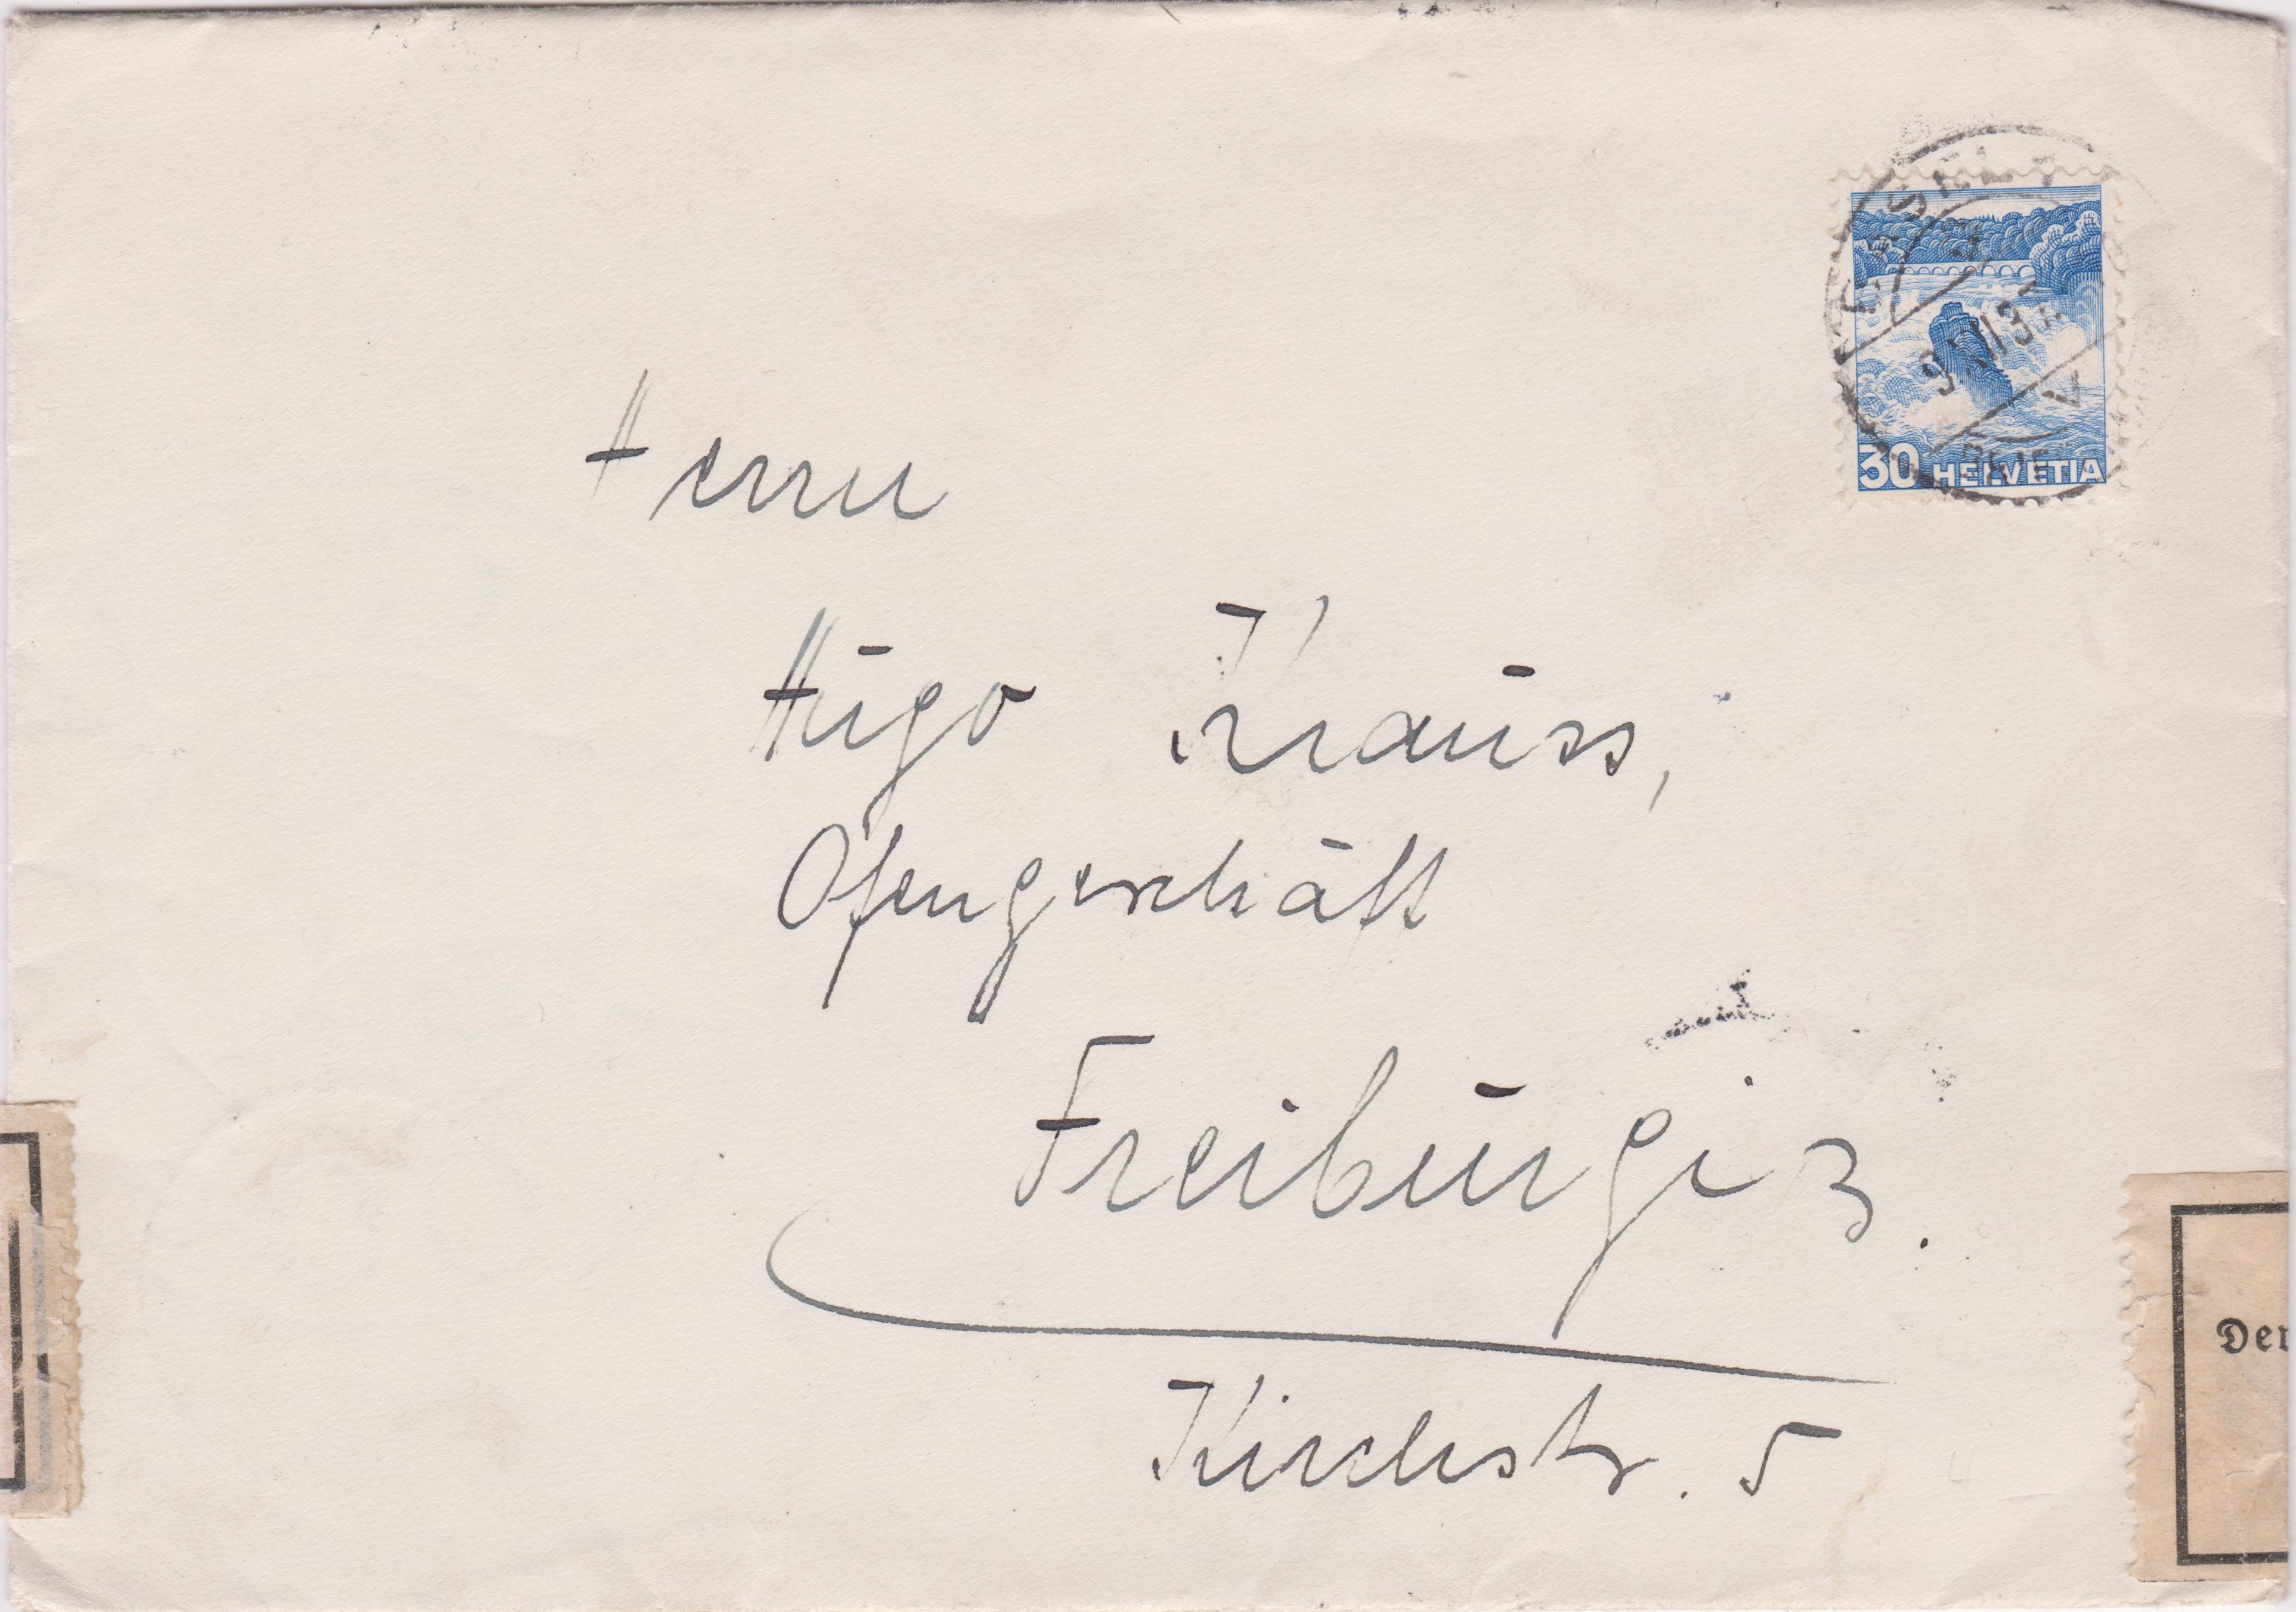 30 HELVETIA
Herrn
Hugo Krauss,
Ofengeschäft
Freiburg i. B.
Kirchstr. 5
Der